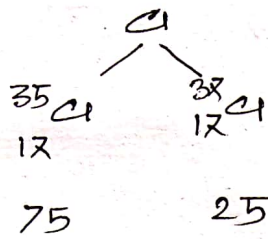 Cl
³⁵₁₇Cl ³⁷₁₇Cl
75 25